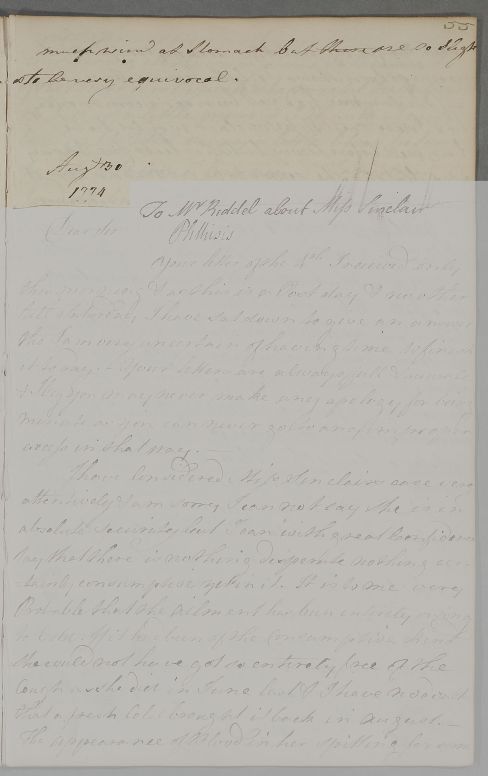 55
much wind at Stomach but these are so slight
as to be very equivocal.
Augt 30
1774
To Mr Riddel about Miss Sinclair
Phthisis
Dear Sir
Your letter of the 4th I received only
this morning & as this is a Post day & no other
till Saturday I have sat down to give an answer
tho I am very uncertain of having time to finish
it to day. Your letters are always full & accurate
& I beg you may never make any apology for being
minute as you can never go to an improper
excess in that way. —
I have considered Miss Sinclairs case very
attentively & am sorry I can not say she is in
absolute security but I can with great confidence
say that there is nothing desperate nothing cer-
tainly consumptive yet in it. It is to me very
Probable that the ailment has been entirely owing
to cold. If it had been of the Consumptive kind
she could not have got so entirely free of the
Cough as she did in June last & I have no doubt
that a fresh Cold brought it back in August. —
The appearance of Blood in her spitting for some